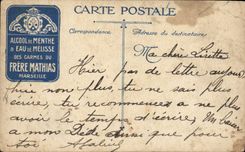 CARTE POSTALE
Correspondance Adresse du Destinataire
ALCOOL DE MENTHE
& EAU DE MÉLISSE
DES CARMES DU
FRÈRE MATHIAS
MARSEILLE
Ma chère Lisette
Hier pas de lettre aujour
hui non plus, tu ne sais plus
écrire, tu recommences a ne plus
avoir le temps d'écrire, Un baiser
a mon Dédé ainsi que pour
toi